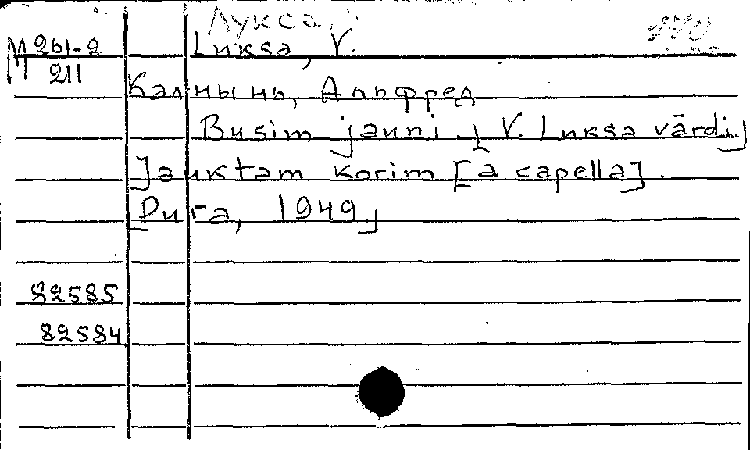 Лукса,
М 261-2 Luksa, V.
211
Калнынь, Альфред
Busim jauni. V. Luksa vārdi]
Jauktam korim [a capella].
[Рига, 1949]
82585
82584